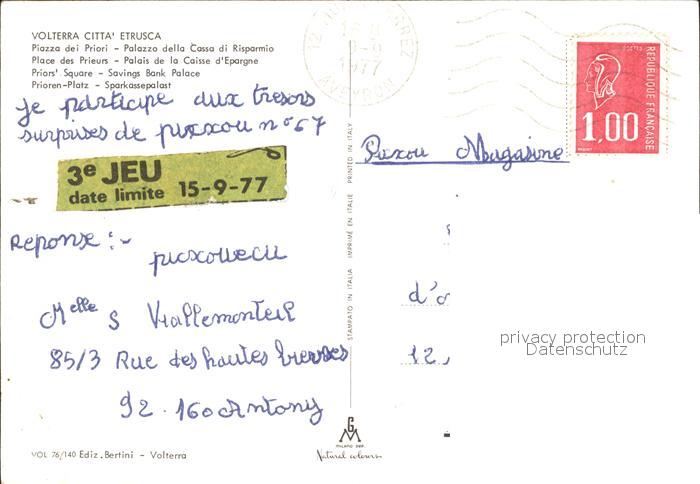 VOLTERRA CITTA' ETRUSCA
Piazza dei Priori - Palazzo della Cassa di Risparmio
Place des Prieurs - Palais de la Caisse d'Epargne
Priors' Square - Savings Bank Palace
Prioren-Platz - Sparkassepalast
je participe aux tresors
surprises de pixxou n° 67
3e JEU
date limite 15-9-77
Reponse :-
Melle S Viallemonteil
85/3 Rue des hautes bieves
92.160 Antony
VOL 76/140 Ediz. Bertini - Volterra
STAMPATO IN ITALIA IMPRIMÉ EN ITALIE PRINTED IN ITALY
MILANO
Natural colours
1977
REPUBLIQUE FRANÇAISE
POSTES
1,00
Pixou Magasine
d'o
12,
privacy protection
Datenschutz